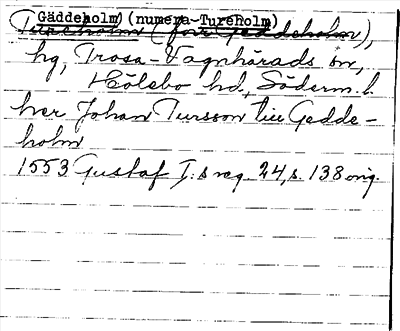 Gäddeholm) (numera Tureholm)
Tureholm (förr Geddeholm),
hg, Trosa-Vagnhärads sn,
Hölebo hd, Söderm. l.
her Johan Tursson till Gedde-
holm
1553 Gustaf I:s reg. 24, s. 138 orig.